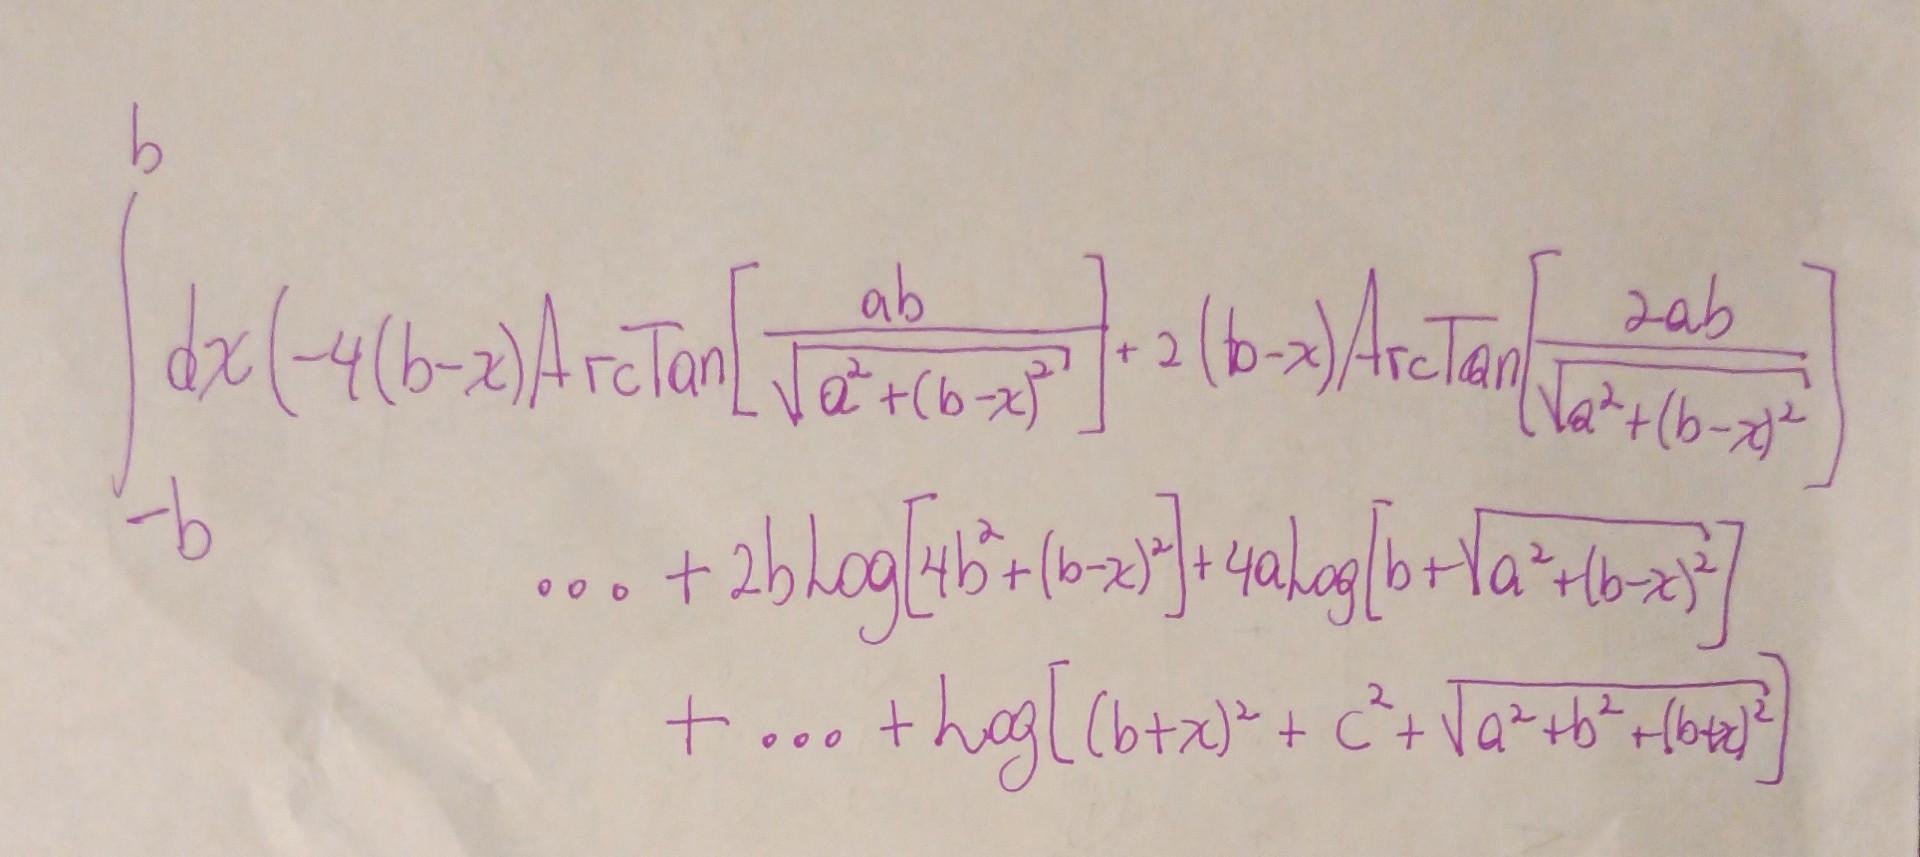 ∫_{-b}^{b} dx(-4(b-x)ArcTan[ab/√(a²+(b-x)²)] + 2(b-x)ArcTan[2ab/√(a²+(b-x)²)]
... + 2bLog[4b²+(b-x)²] + 4aLog[b+√(a²+(b-x)²)]
+ ... + Log[(b+x)² + c² + √(a²+b²+(b+x)²)]